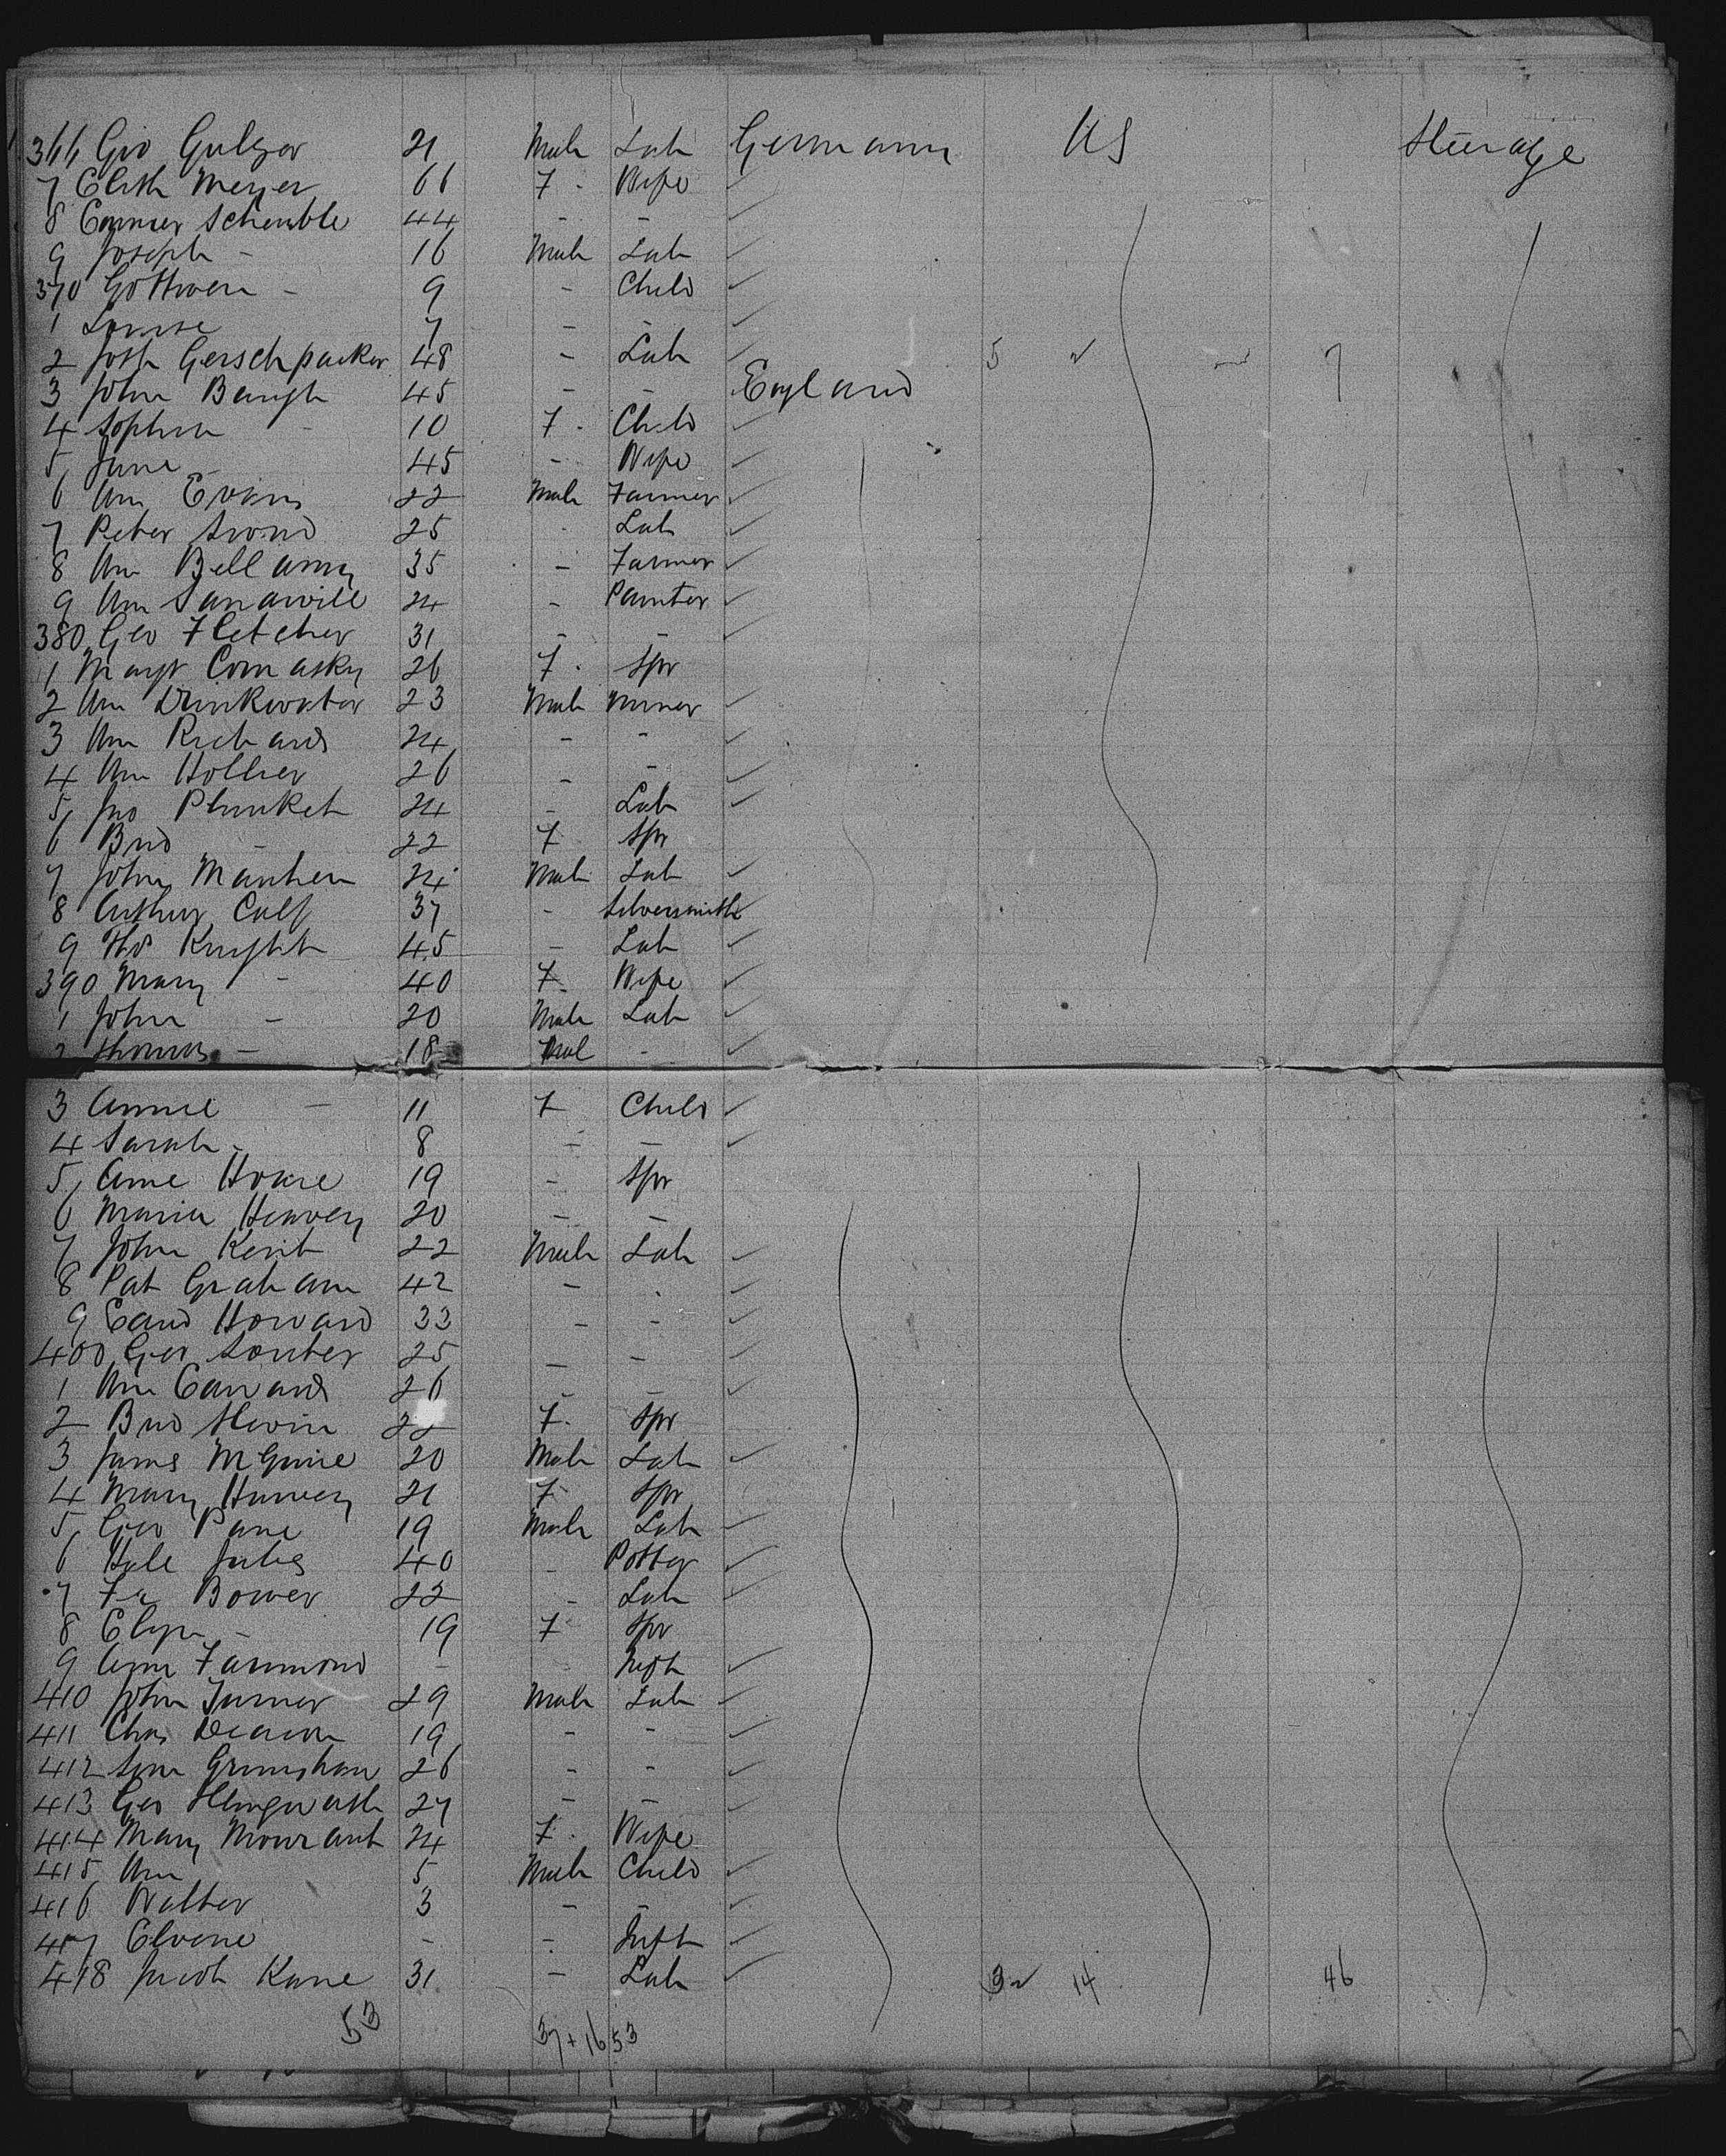 366 Geo Gulyar 21 Male Lab Germany US Steerage
7 Elith Meyer 66 F - Wife
8 Schemble 44 - -
9 Joseph - 16 Male Lab
370 - 9 - Child
1 Louise 7 - -
2 Josh Gerschpacker 48 - Lab 5 7
3 John Baugh 45 - - England
4 Sophia - 10 F - Child
5 Jane - 45 - Wife
6 Wm Evans 22 Male Farmer
7 Peter 25 - Lab
8 Wm Bellamy 35 - Farmer
9 Wm 24 - Painter
380 Geo Fletcher 31 - -
1 Margt Comasky 26 F - Spr
2 Wm Drinkwater 23 Male Miner
3 Wm Richards 24 - -
4 Wm Hollier 26 - -
5 Jno Plunket 24 - Lab
6 Brid - 22 F Spr
7 John 24 Male Lab
8 Arthur Calf 37 - Silversmith
9 Thos Knight 45 - Lab
390 Mary - 40 F. Wife
1 John - 20 Male Lab
2 Thomas - 18 Mal -
3 Annie - 11 F Child
4 Sarah - 8 - -
5 Anne Hoare 19 - Spr
6 Maria Heavey 20 - -
7 John Kent 22 Male Lab
8 Pat Graham 42 - -
9 Edwd Howard 33 - -
400 Geo Souter 25 - -
1 Wm Edwards 26 - -
2 Brid 22 F. Spr
3 James McGuire 20 Male Lab
4 Mary Harvey 21 F Spr
5 Geo Pane 19 Male Lab
6 Hall Jules 40 - Potter
7 Bower 22 - Lab
8 - 19 F Spr
9 Farmond - - Inft
410 John Turner 29 Male Lab
411 Chas Deacon 19 - -
412 Grimshaw 26 - -
413 Geo 27 - -
414 Mary Mourant 24 F. Wife
415 Wm 5 Male Child
416 Walter 3 - -
417 - - Inft
418 Jacob Kane 31 - Lab 14 46
53 37+16 53